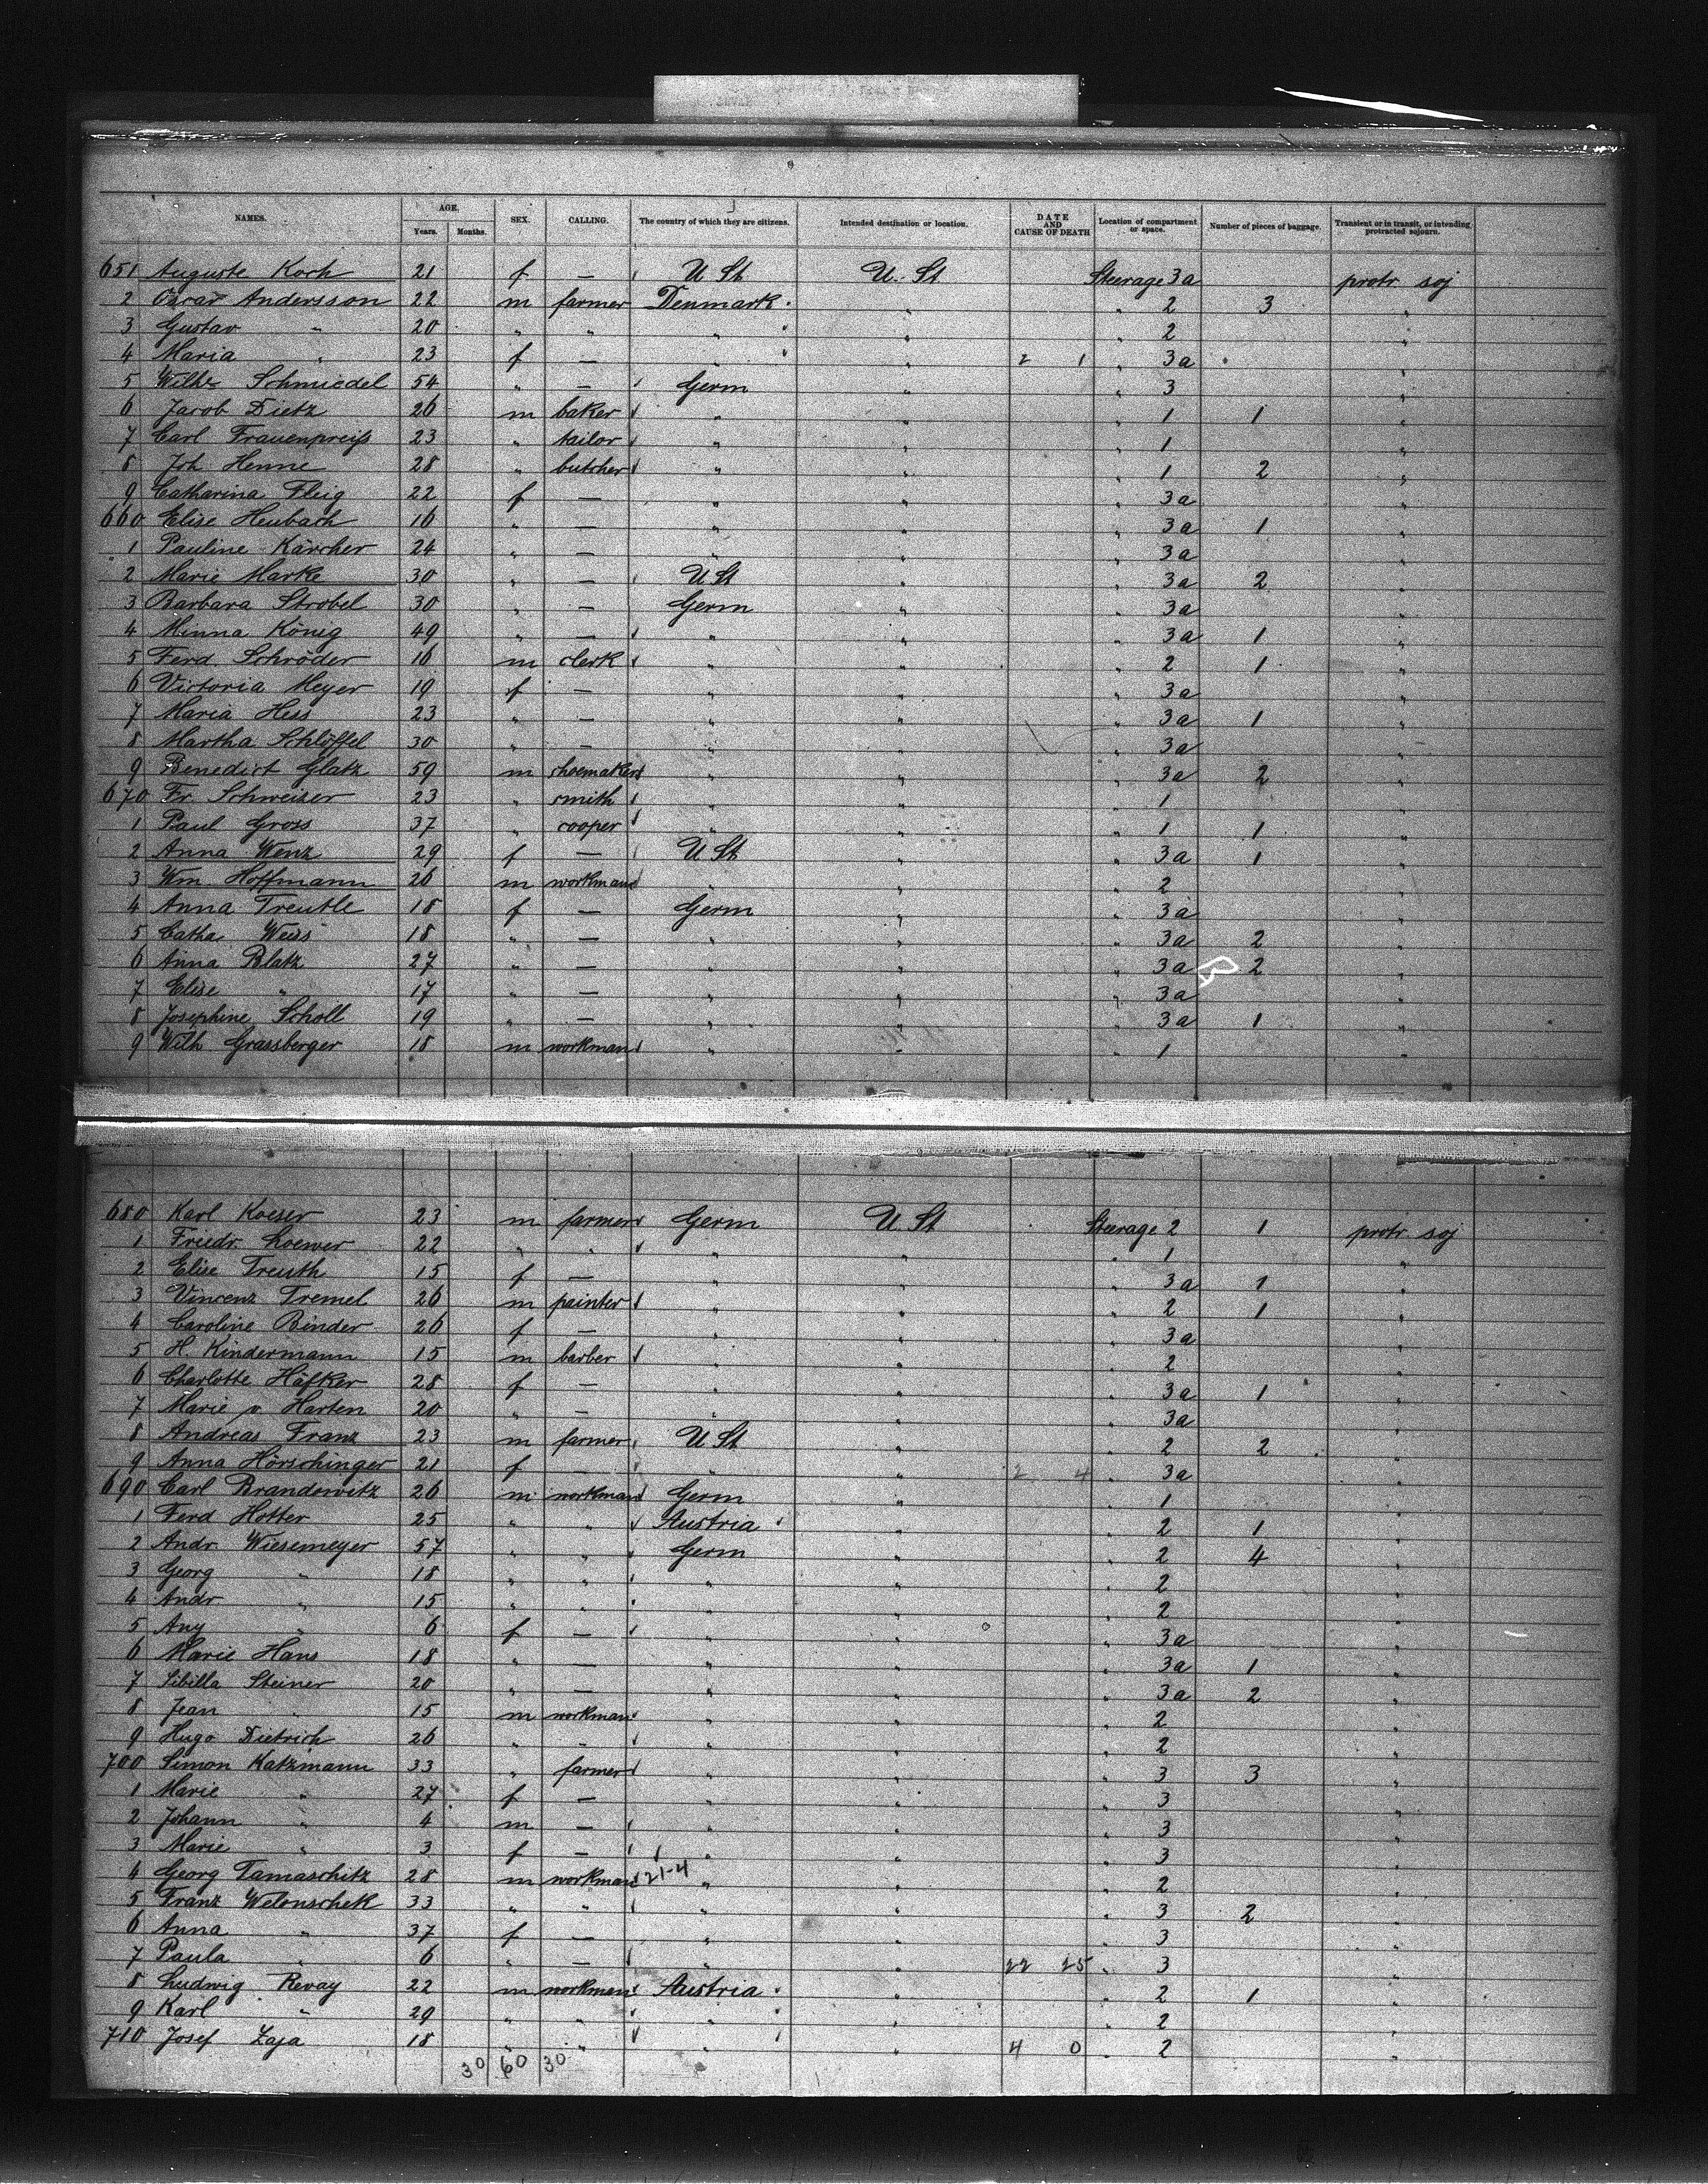 NAMES. AGE. Years. Months. SEX. CALLING. The country of which they are citizens. Intended destination or location. DATE AND CAUSE OF DEATH Location of compartment or space. Number of pieces of baggage. Transient or in transit, or intending protracted sojourn.
651 Auguste Koch 21 f — U St U. St Steerage 3a protr soj
2 Oscar Andersson 22 m farmer Denmark " " 2 3 "
3 Gustav " 20 " " " " " 2 "
4 Maria " 23 f — " " 2 1 " 3a "
5 Wilhe Schmiedel 54 " — Germ " " 3 "
6 Jacob Dietz 26 m baker " " " 1 1 "
7 Carl Frauenpreiß 23 " tailor " " " 1 "
8 Joh Henne 28 " butcher " " " 1 2 "
9 Catharina Fleig 22 f — " " " 3a "
660 Elise Heubach 16 " — " " " 3a 1 "
1 Pauline Kärcher 24 " — " " " 3a "
2 Marie Marke 30 " — U St " " 3a 2 "
3 Barbara Strobel 30 " — Germ " " 3a "
4 Minna König 49 " — " " " 3a 1 "
5 Ferd. Schröder 16 m clerk " " " 2 1 "
6 Victoria Meyer 19 f — " " " 3a "
7 Maria Hess 23 " — " " " 3a 1 "
8 Martha Schlöffel 30 " — " " " 3a "
9 Benedict Glatz 59 m shoemaker " " " 3a 2 "
670 Fr. Schweizer 23 " smith " " " 1 "
1 Paul Gross 37 " cooper " " " 1 1 "
2 Anna Wenz 29 f — U St " " 3a 1 "
3 Wm. Hoffmann 26 m workman " " " 2 "
4 Anna Treutle 18 f — Germ " " 3a "
5 Catha Weiss 18 " — " " " 3a 2 "
6 Anna Blatz 27 " — " " " 3a 2 "
7 Elise " 17 " — " " " 3a "
8 Josephine Scholl 19 " — " " " 3a 1 "
9 Wilh Grassberger 18 m workman " " " 1 "
680 Karl Koeser 23 m farmer Germ U. St Steerage 2 1 protr soj
1 Friedr. Loewer 22 " " " " " 1 "
2 Elise Treuth 15 f — " " " 3a 1 "
3 Vincenz Tremel 26 m painter " " " 2 1 "
4 Caroline Binder 26 f — " " " 3a "
5 H. Kindermann 15 m barber " " " 2 "
6 Charlotte Häfker 28 f — " " " 3a 1 "
7 Marie v Harten 20 " — " " " 3a "
8 Andreas Franz 23 m farmer U St " " 2 2 "
9 Anna Hörschinger 21 f — " " 2 4 " 3a "
690 Carl Brandewitz 26 m workman Germ " " 1 "
1 Ferd Hotter 25 " " Austria " " 2 1 "
2 Andr. Wiesemeyer 57 " " Germ " " 2 4 "
3 Georg " 18 " " " " " 2 "
4 Andr " 15 " " " " " 2 "
5 Any " 6 f — " " " 3a "
6 Marie Hans 18 " — " " " 3a 1 "
7 Sibilla Steiner 20 " — " " " 3a 2 "
8 Jean " 15 m workman " " " 2 "
9 Hugo Dietrich 26 " " " " " 2 "
700 Simon Katzmann 33 " farmer " " " 3 3 "
1 Marie " 27 f — " " " 3 "
2 Johann " 4 m — " " " 3 "
3 Marie " 3 f — " " " 3 "
4 Georg Tamaschitz 28 m workman 21-4 " " " 2 "
5 Franz Welonschek 33 " " " " " 3 2 "
6 Anna " 37 f — " " " 3 "
7 Paula " 6 " — " " 22 25 " 3 "
8 Ludwig Revay 22 m workman Austria " " 2 1 "
9 Karl " 29 " " " " " 2 "
710 Josef Zaja 18 " " " " 4 0 " 2 "
30 60 30